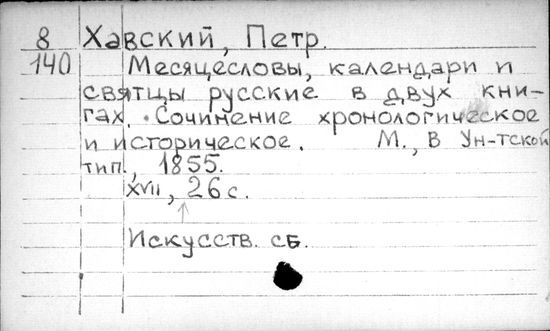 8 Хавский, Петр.
140 Месяцесловы, календари и
святцы русские в двух кни-
гах. Сочинение хронологическое
и историческое. М., В Ун-тской
тип., 1855.
XVII, 26 с.
Искусств. сб.